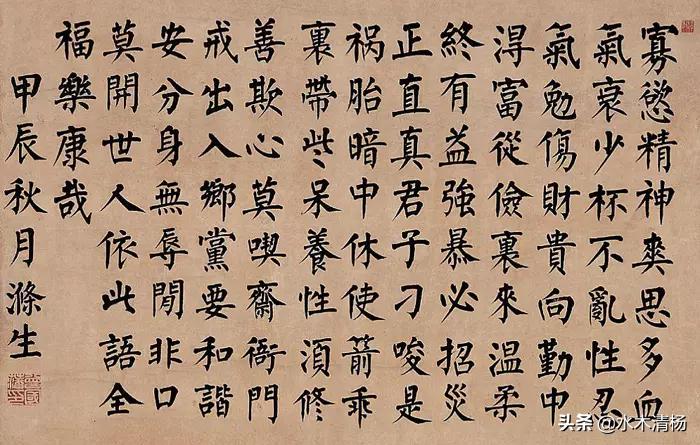 寡慾精神爽思多血
氣衰少杯不亂性忍
氣勉傷財貴向勤中
淂富從儉裏來温柔
終有益強暴必招災
正直真君子刁唆是
祸胎暗中休使箭乖
裏帶些呆養性湏修
善欺心莫喫齋衙門
戒出入鄉黨要和諧
安分身無辱閒非口
莫開世人依此語全
福樂康哉
甲辰秋月滌生
头条 @水木清杨